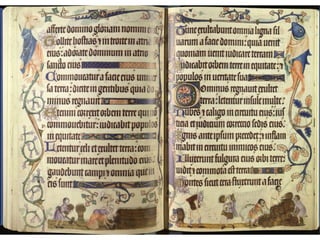 afferte domino gloriam nomini ei
Tollite hostias ⁊ introite in atria
eius: adorate dominum in atrio
sancto eius
Commoueatur a facie eius uniuer
sa terra: dicite in gentibus quia do
minus regnauit
Etenim correxit orbem terre qui n
commouebitur: iudicabit populos
in equitate
Letentur celi et exultet terra: com
moueatur mare et plenitudo eius:
gaudebunt campi ⁊ omnia que in
eis sunt
Tunc exultabunt omnia ligna sil
uarum a facie domini: quia uenit
quoniam uenit iudicare terram
Iudicabit orbem terre in equitate: ⁊
populos in ueritate sua
Dominus regnauit exultet
terra: letentur insule multe
Nubes ⁊ caligo in circuitu eius: iusti
cia et iudicium correctio sedis eius.
Ignis ante ipsum precedet: ⁊ inflam
mabit in circuitu inimicos eius
Illuxerunt fulgura eius orbi terre:
uidit ⁊ commota est terra
Montes sicut cera fluxerunt a facie